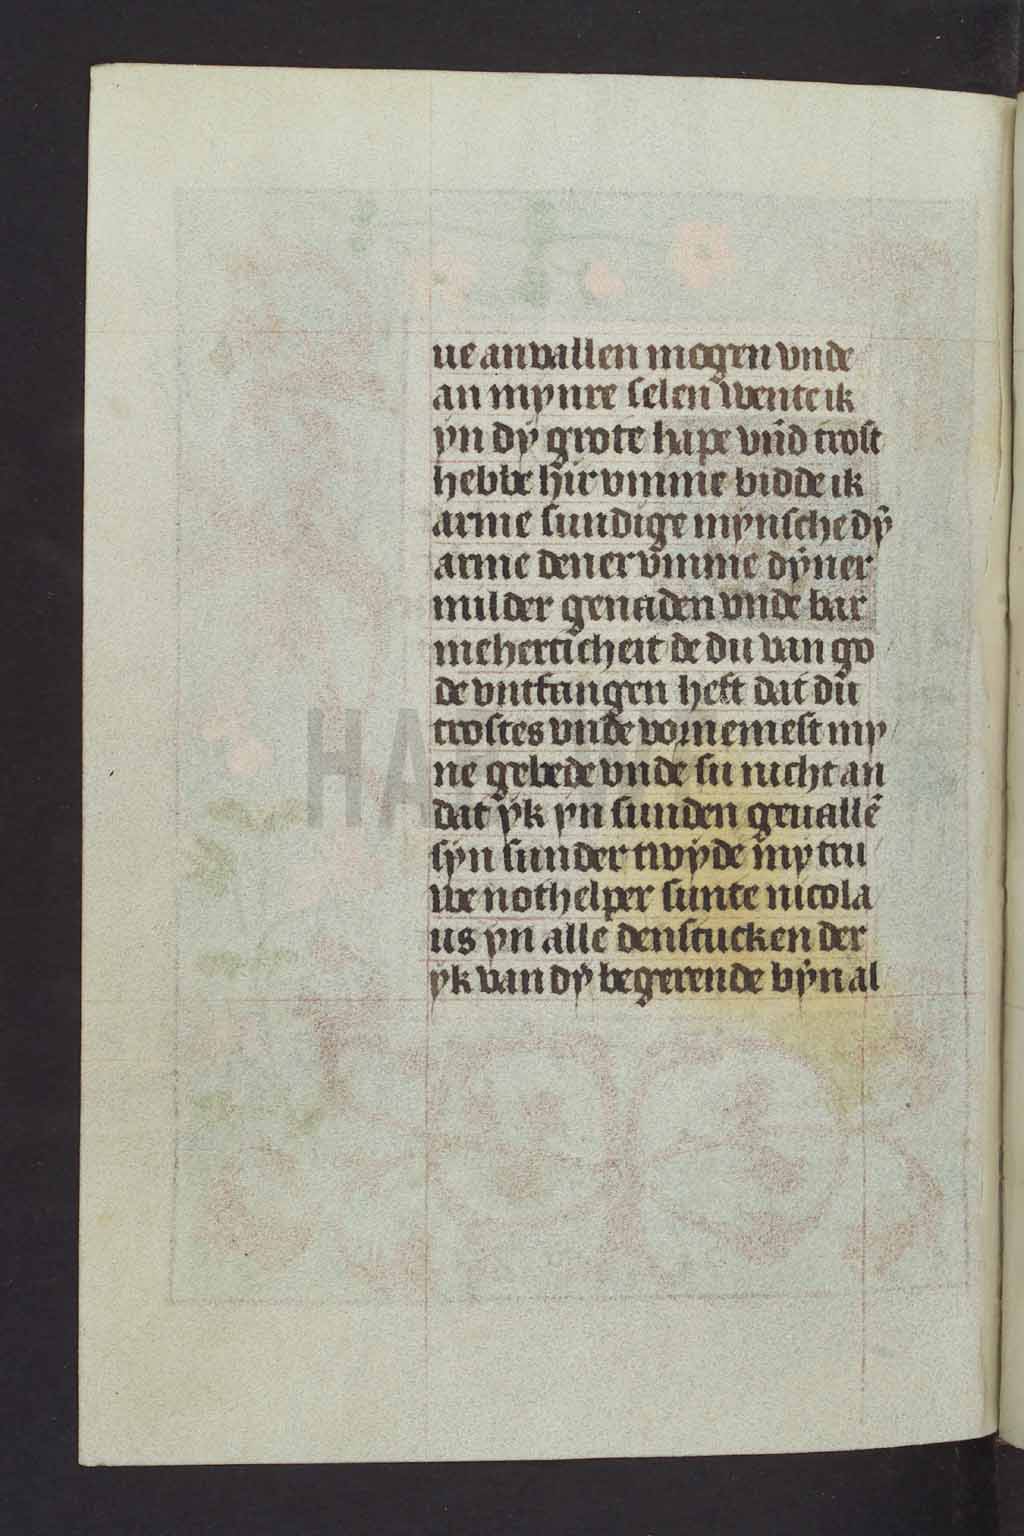 ue anuallen mogen vnde
an mynre selen wente ik
yn dy grote hape vnd trost
hebbe hir vmme bidde ik
arme sundige mynsche dy
arme dener vmme dyner
milder genaden vnde bar
meherticheit de du van go
de vntfangen heft dat du
trostes vnde vornemest my
ne gebede vnde su nicht an
dat yk yn sunden geuallē
syn sunder twyde my tru
we nothelper sunte nicola
us yn alle den stucken der
yk van dy begerende byn al